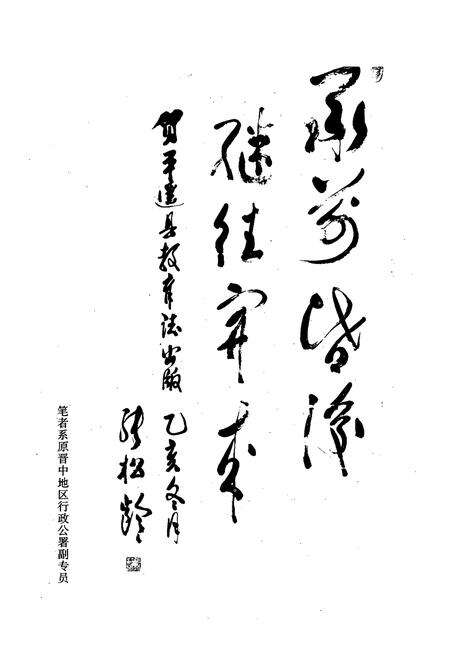 承前啓后
继往开来
贺平遥县教育志出版
乙亥冬月
张松龄
笔者系原晋中地区行政公署副专员